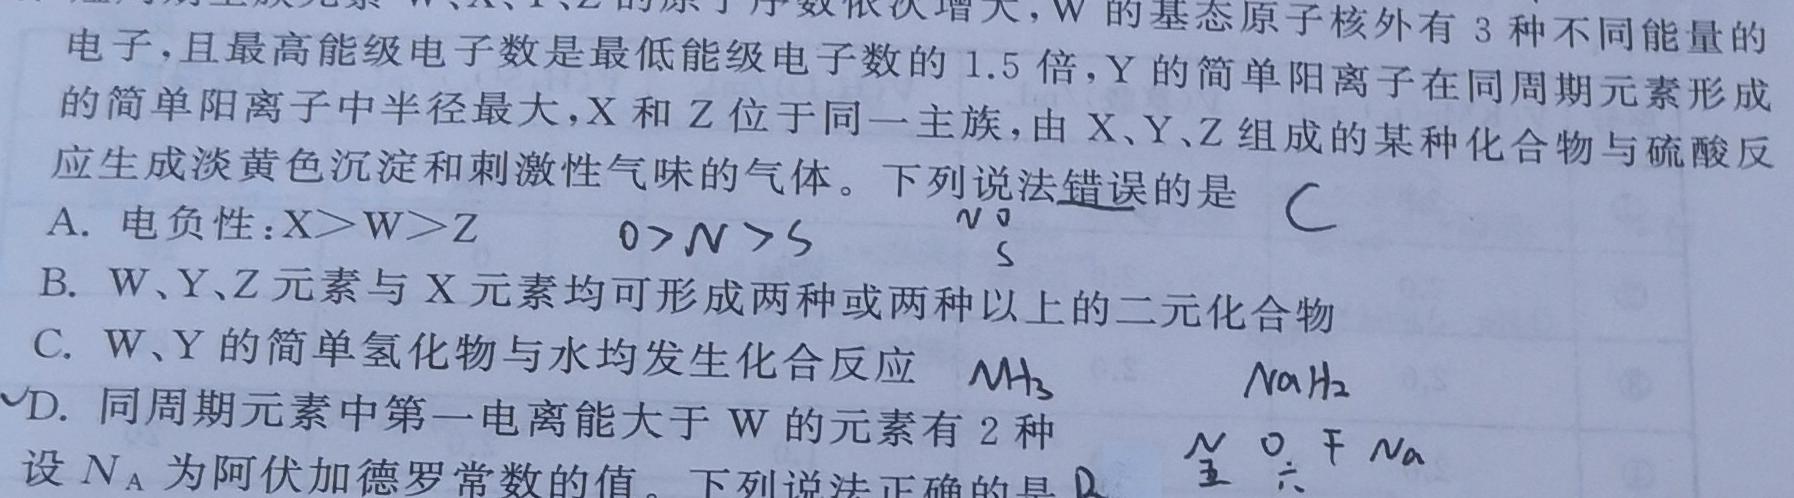 W、X、Y、Z 的原子序数依次增大,W 的基态原子核外有 3 种不同能量的
电子,且最高能级电子数是最低能级电子数的 1.5 倍,Y 的简单阳离子在同周期元素形成
的简单阳离子中半径最大,X 和 Z 位于同一主族,由 X、Y、Z 组成的某种化合物与硫酸反
应生成淡黄色沉淀和刺激性气味的气体。下列说法错误的是 C
N O
S
A. 电负性:X>W>Z O>N>S
B. W、Y、Z 元素与 X 元素均可形成两种或两种以上的二元化合物
C. W、Y 的简单氢化物与水均发生化合反应 NH3 NaH2
D. 同周期元素中第一电离能大于 W 的元素有 2 种
N O F Na
五 六
设 NA 为阿伏加德罗常数的值。下列说法正确的是 D